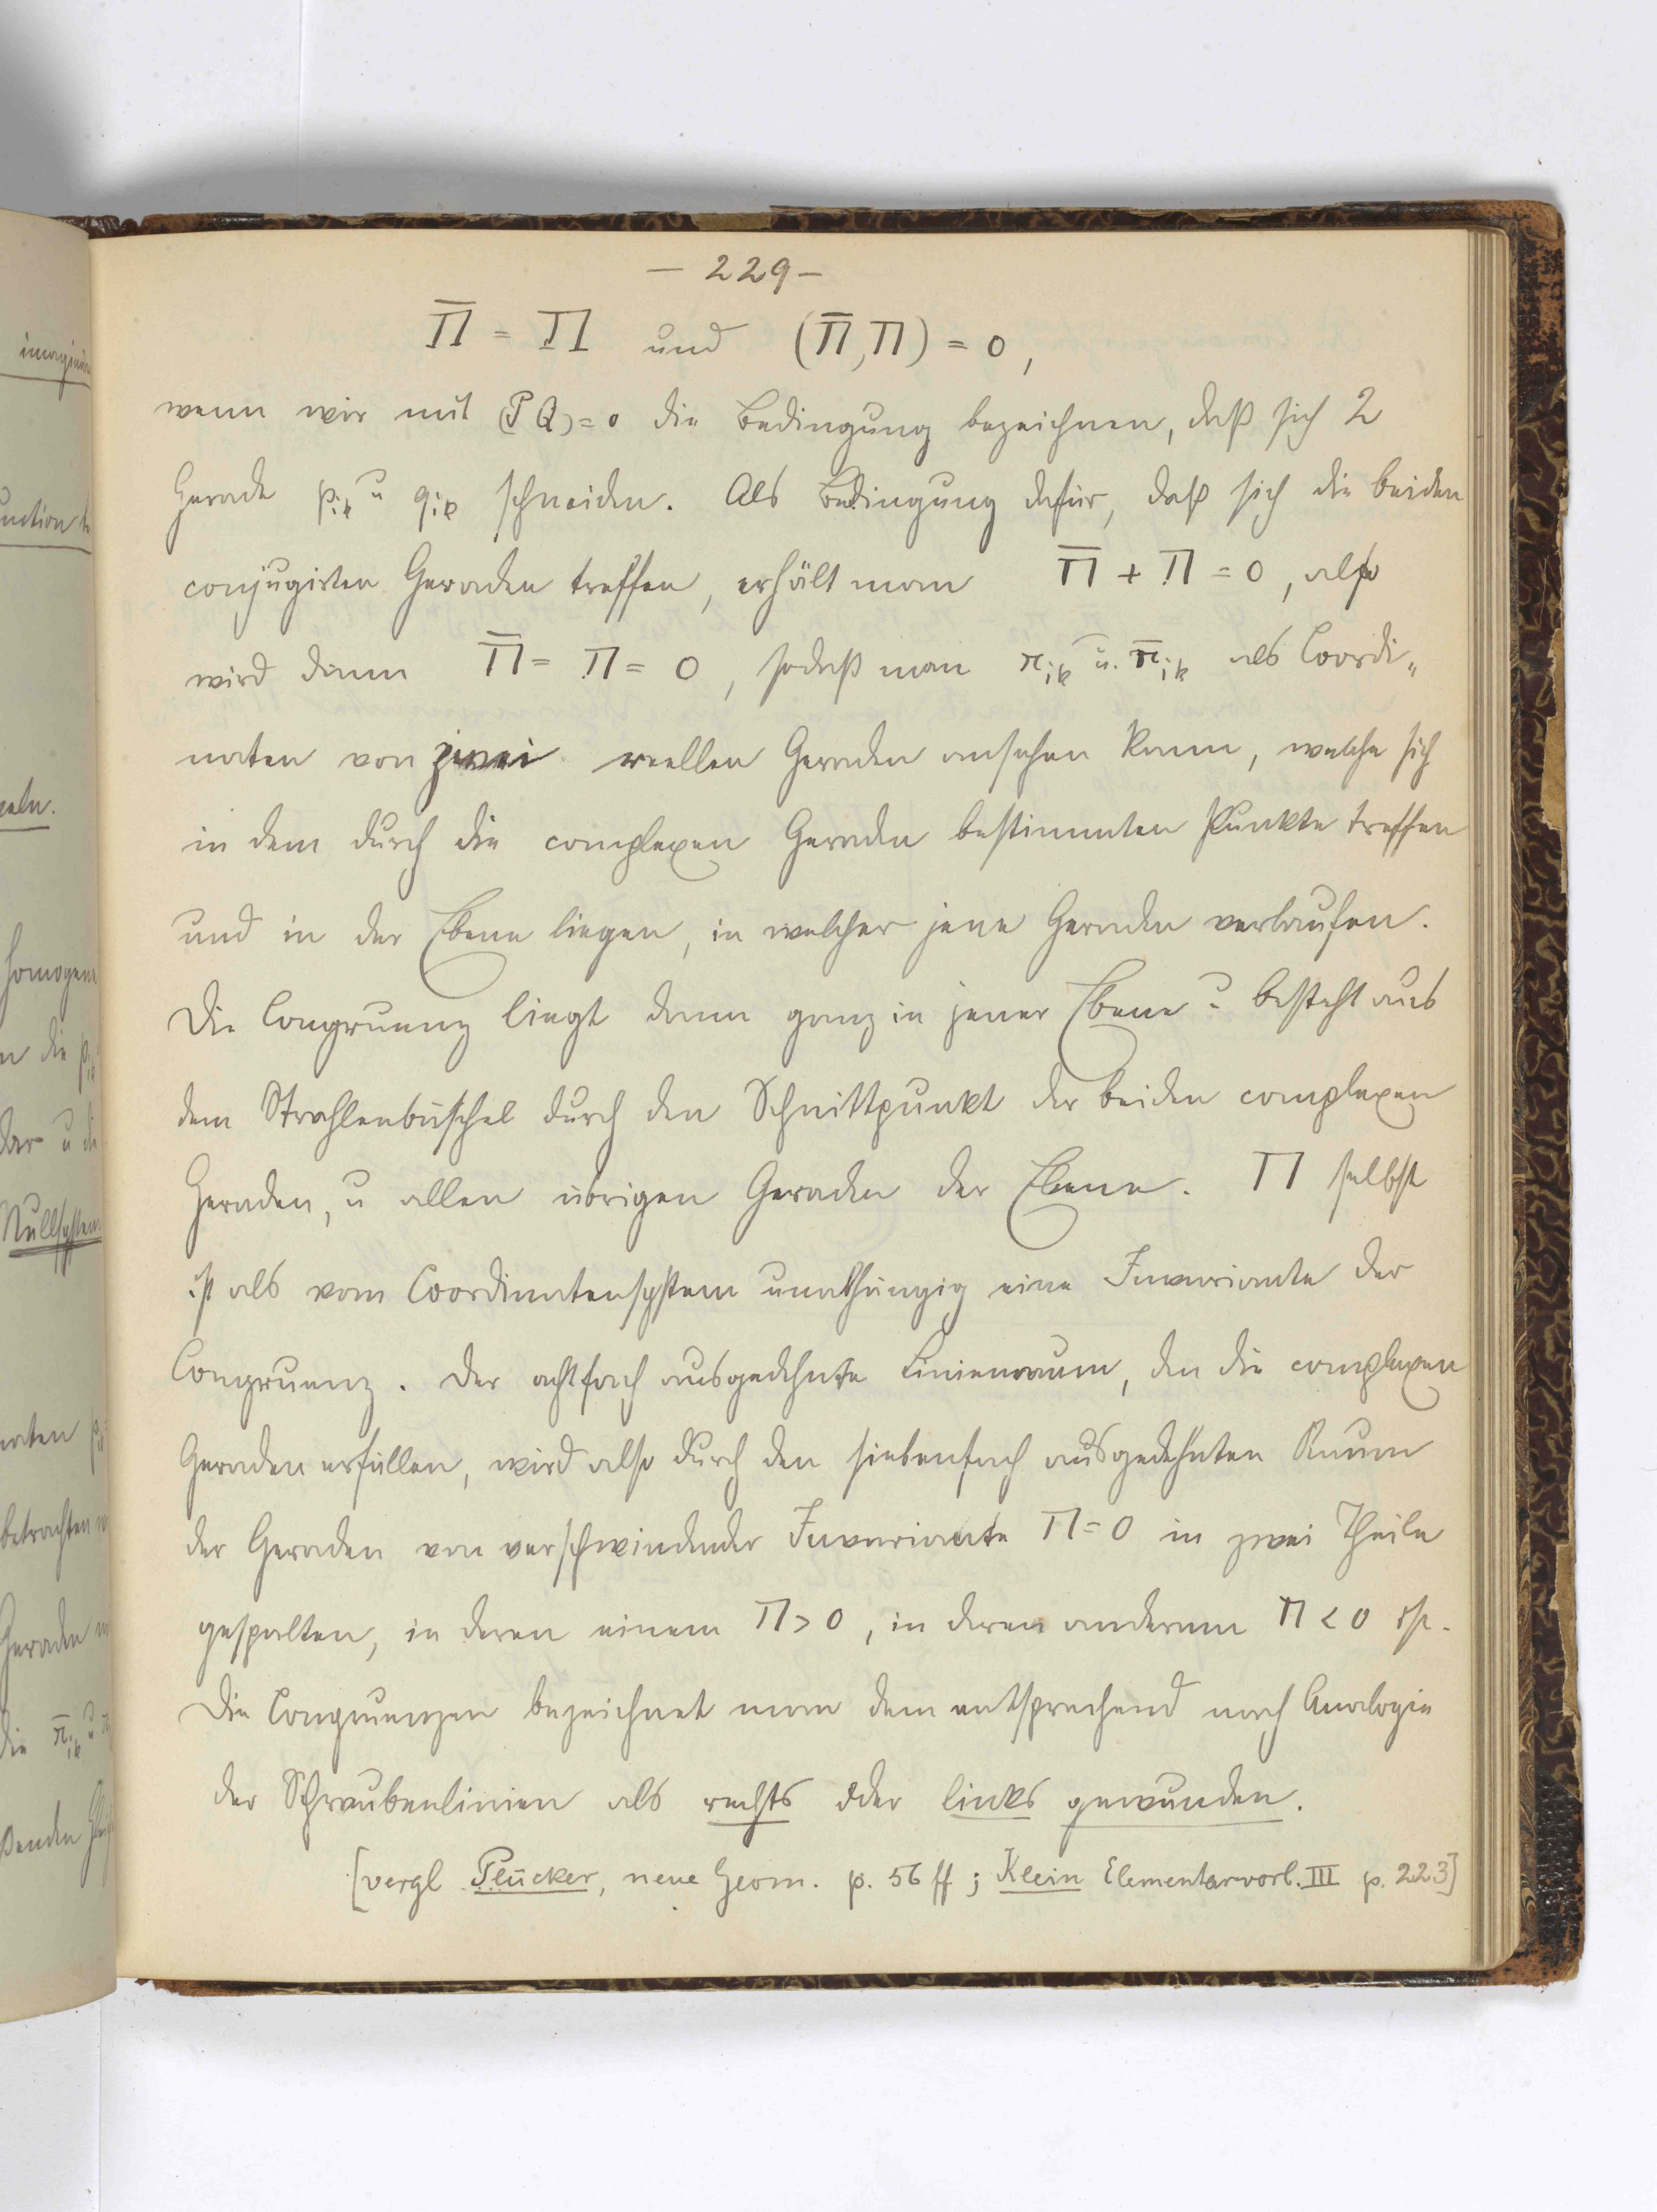 — 229 —
Π̅ = Π und (Π̅, Π) = 0,
wenn wir mit (P Q) = 0 die Bedingung bezeichnen, daß sich 2
Gerade p_ik u q_ik schneiden. Als Bedingung dafür, daß sich die beiden
conjugirten Geraden treffen, erhält man Π̅ + Π = 0, also
wird dann Π̅ = Π = 0, sodaß man π_ik u. π̅_ik als Coordi„
naten von zwei reellen Geraden ansehen kann, welche sich
in dem durch die complexen Geraden bestimmten Punkte treffen
und in der Ebene liegen, in welcher jene Geraden verlaufen.
Die Congruenz liegt dann ganz in jener Ebene u. besteht aus
dem Strahlenbüschel durch den Schnittpunkt der beiden complexen
Geraden, u allen übrigen Geraden der Ebene. Π selbst
ist als vom Coordinatensystem unabhängig eine Invariante der
Congruenz. Der achtfach ausgedehnte Linienraum, den die complexen
Geraden erfüllen, wird also durch den siebenfach ausgedehnten Raum
der Geraden von verschwindender Invariante Π = 0 in zwei Theile
gespalten, in deren einem Π > 0, in deren anderem Π < 0 ist.
Die Congruenzen bezeichnet man dem entsprechend nach Analogie
der Schraubenlinien als rechts oder links gewunden.
[vergl Plücker, neue Geom. p. 56 ff; Klein Elementarvorl. III p. 223]
Nullsystem
betrachten
Geraden